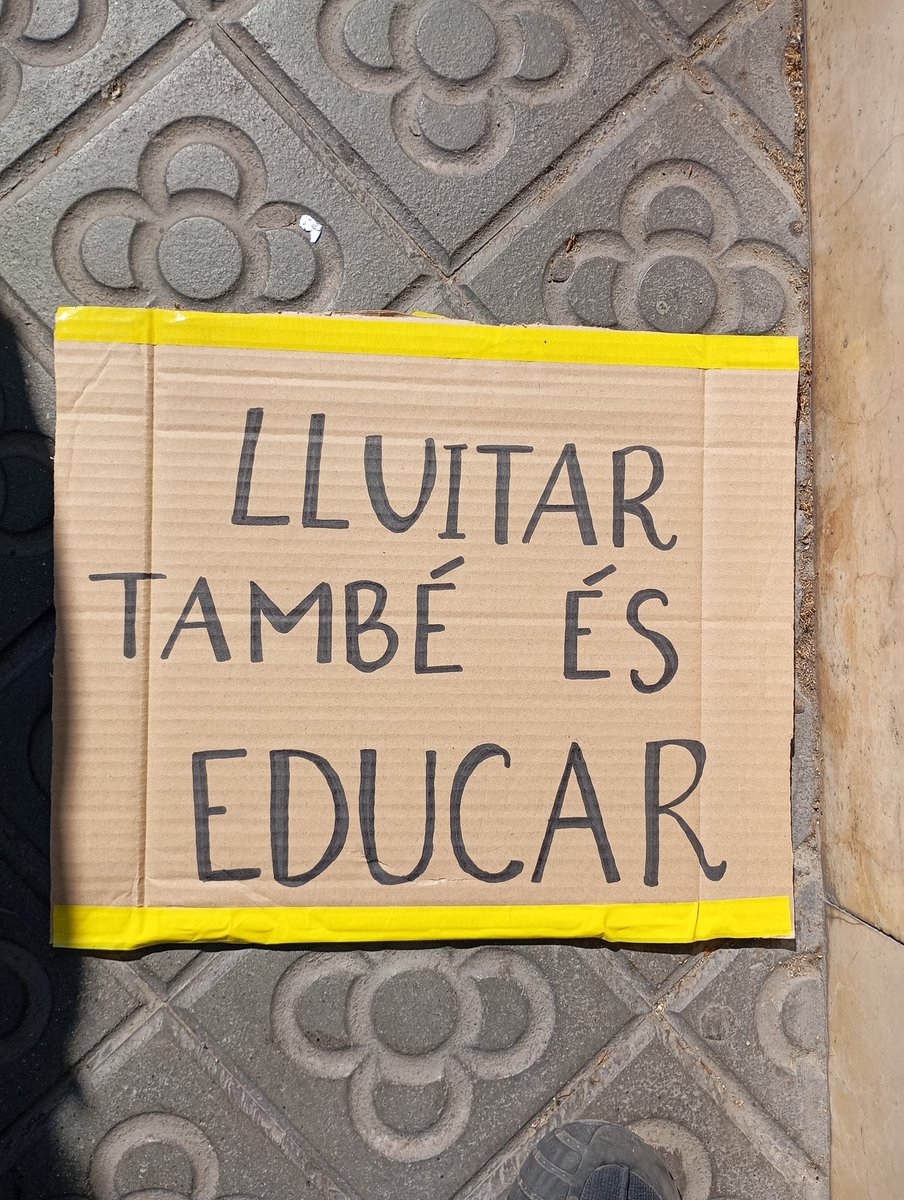 LLUITAR
TAMBÉ ÉS
EDUCAR